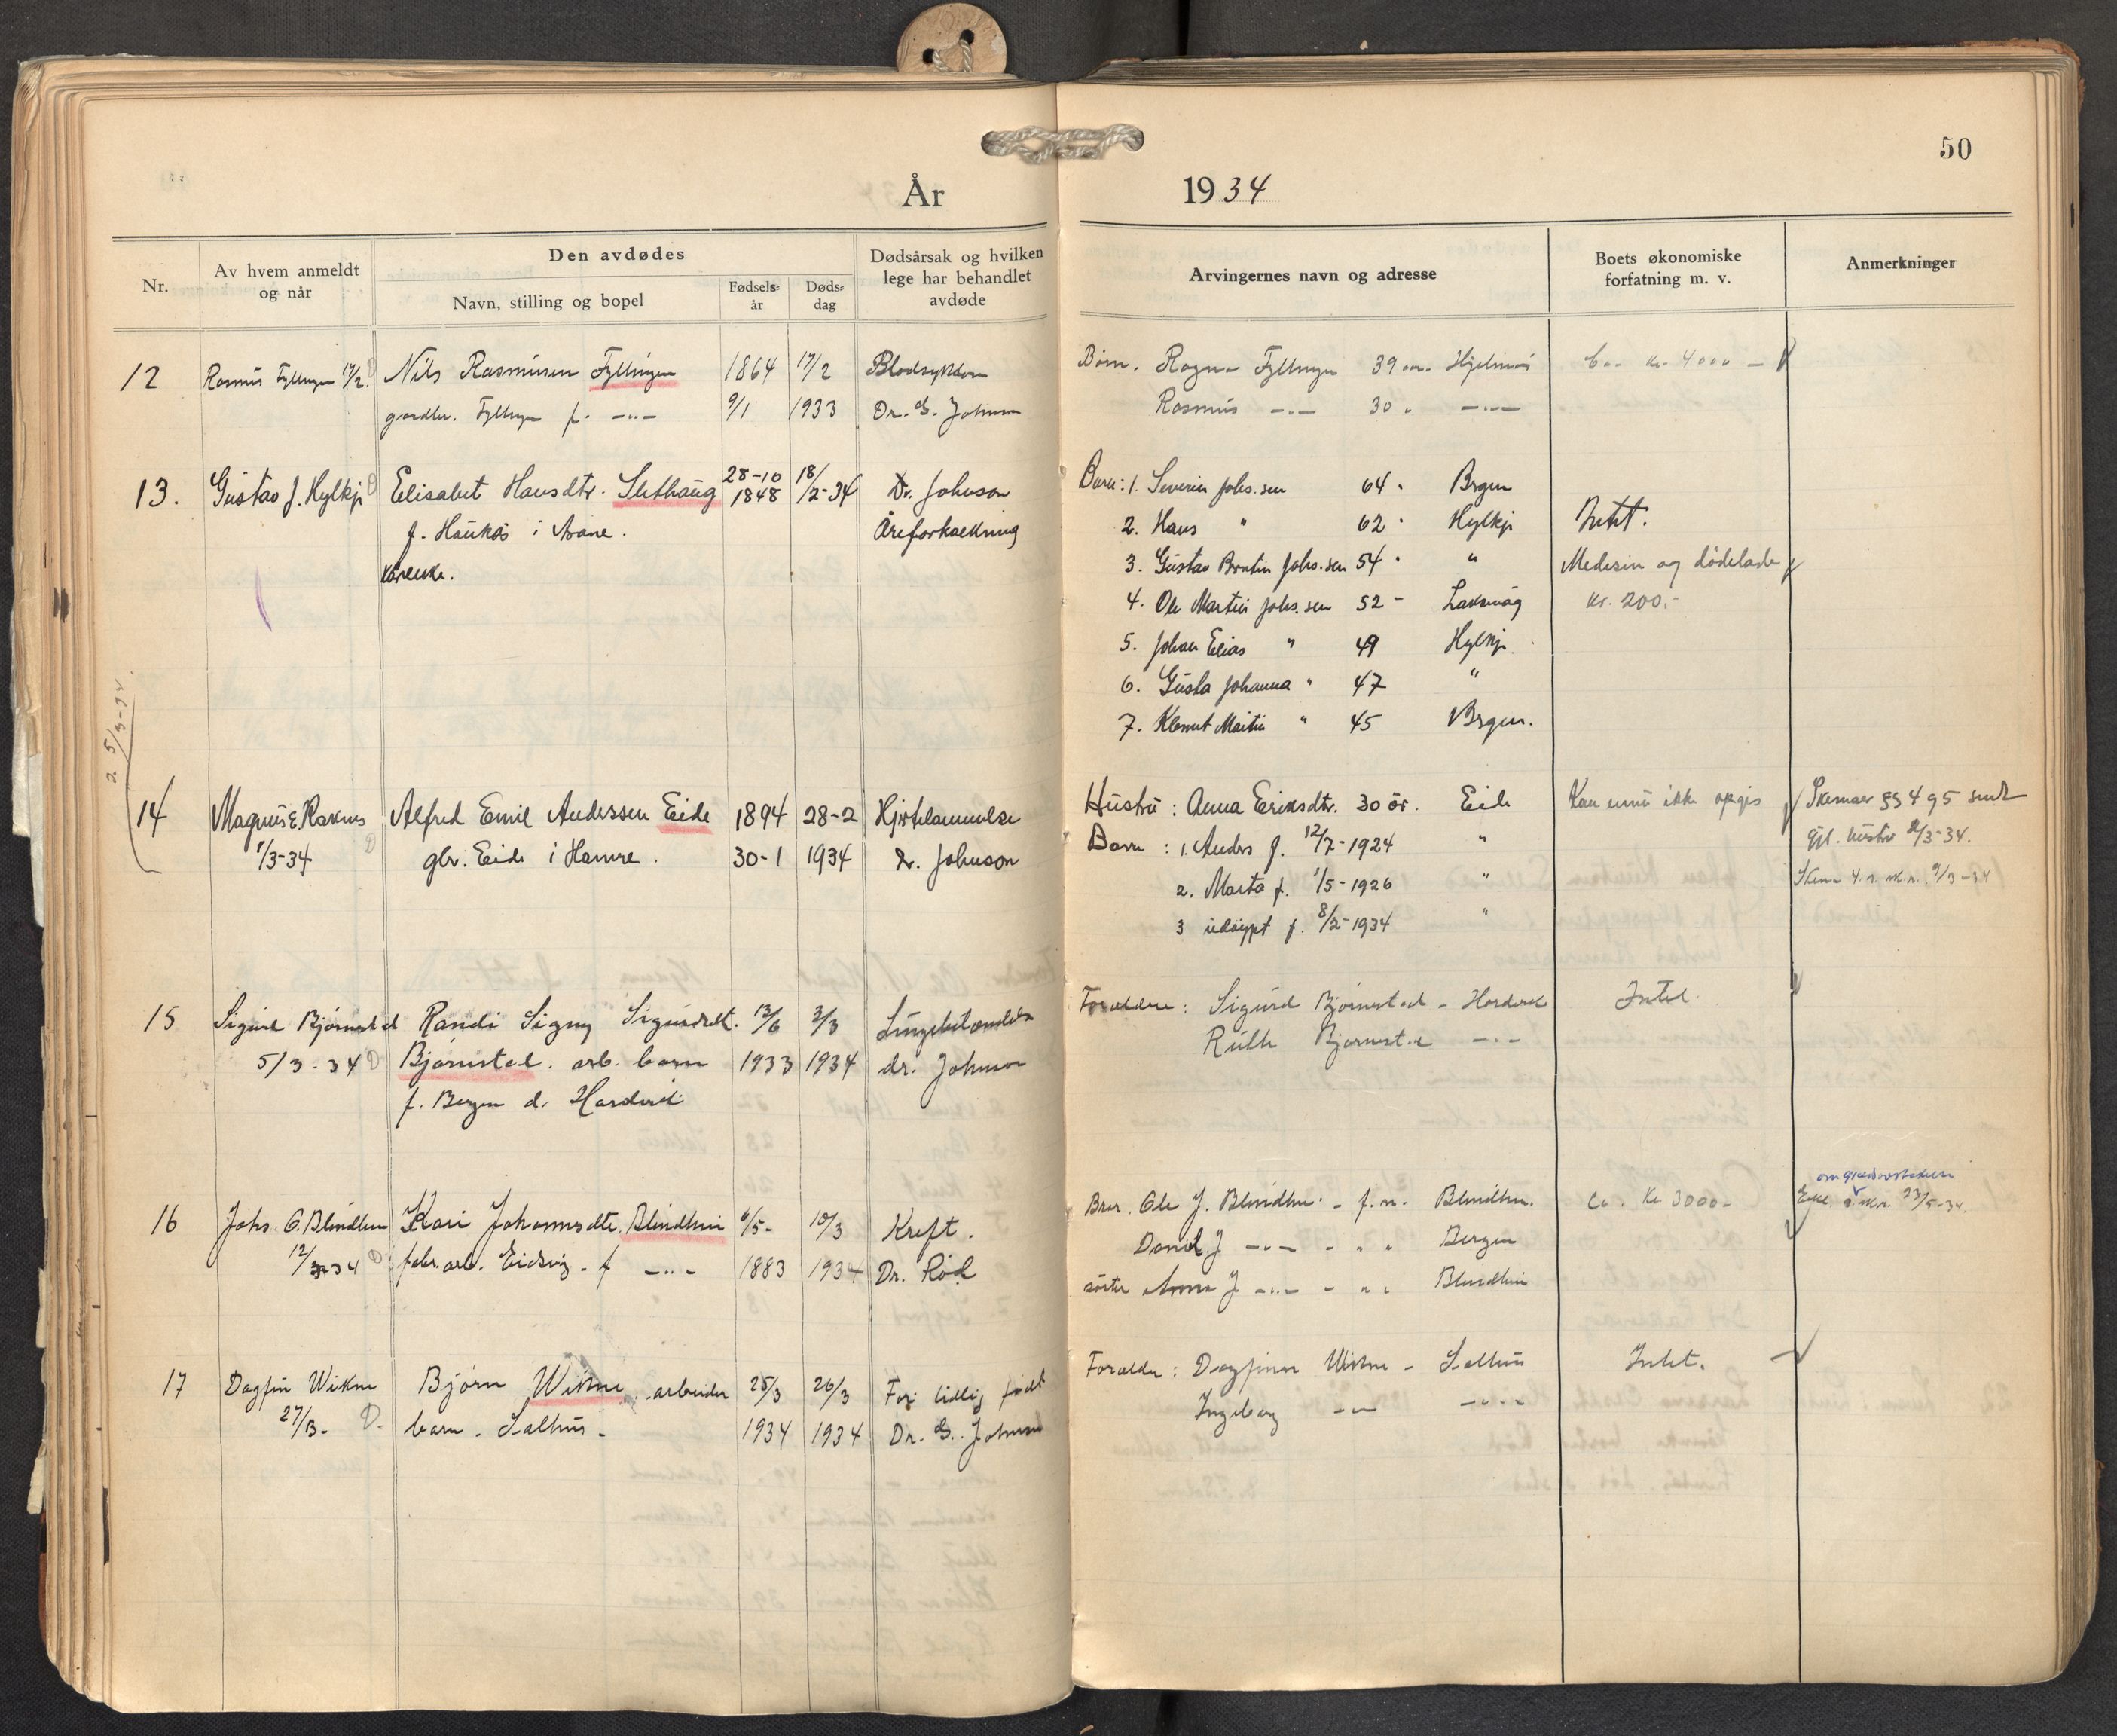 50
År 1934
Nr.
Av hvem anmeldt og når
Den avdødes
Navn, stilling og bopel
Fødsels-år
Døds-dag
Dødsårsak og hvilken lege har behandlet avdøde
Arvingernes navn og adresse
Boets økonomiske forfatning m. v.
Anmerkninger
12 Rasmus Fyllingen 17/2 Nils Rasmussen Fyllingen 1864 17/2 Blodsykdom Børn. Ragna Fyllingen 39 Hjelmås Ca. kr. 4000 –
gardbr. Fyllingen f. –"– 9/1 1933 Dr. G. Johnson Rasmus –"– 30 " –"–
13. Gustav J. Hylkje Elisabet Hansdtr. Slethaug 28-10 1848 18/2-34 Dr. Johnson Barn: 1. Severin Johs.sen 64 " Brgen
f. Haukås i Åsane. Åreforkalkning 2. Hans " 62 " Hylkje Intet.
kårenke. 3. Gustav Johs.sen 54 " " Medisin og dødelade
4. Ole Martin Johs.sen 52 – Laksevåg kr. 200.-
5. Johan Elias " 49 Hylkje
6. Gusta Johanna " 47 "
7. Klemet Martin " 45 Brgen.
2 5/3-34.
14 Magnus E. Raknes Alfred Emil Anderssen Eide 1894 28-2 Hjertelammelse Hustru: Anna Eriksdtr. 30 år. Eide Kan ennu ikke opgis Skemaer §§ 4 g 5 sendt
1/3-34 gbr. Eide i Hamre. 30-1 1934 Dr. Johnson Barn: 1. Anders f. 12/7-1924 " gjl. hustru 2/3-34.
2. Marta f. 1/5-1926 " Skema 4. 9/3-34
3 udøypt f. 8/2-1934 "
15 Sigurd Bjørnestad Randi Signy Sigurdsdt. 13/6 3/3 Lungebetændelse Forældre: Sigurd Bjørnestad – Hordvik Intet.
5/3-34 Bjørnestad. arb. barn 1933 1934 dr. Johnson Ruth Bjørnestad –"–
f. Bergen d. Hordvik
16 Johs O. Blindheim Kari Johannesdtr. Blindheim 6/5- 10/3 Kreft. Bror. Ole J. Blindheim – f.n. Blindheim. Ca. Kr 3000- 23/5-34.
12/3-34 fabr.arb. Eidsvåg. f –"– 1883 1934 Dr. Rød Daniel J –"– – " " Bergen
søster Anna J –"– – " " Blindheim
17 Dagfin Wikne Bjørn Wikne. arbeider 25/3 26/3 For tidlig født Forældre: Dagfinn Wikne – Salhus Intet.
27/3- barn. Salhus – 1934 1934 Dr. G. Johnson Ingeborg –"– –"–